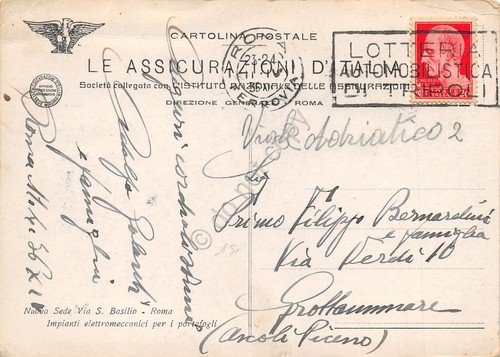 CARTOLINA POSTALE
LE ASSICURAZIONI D'ITALIA
Società collegata con l'ISTITUTO NAZIONALE DELLE ASSICURAZIONI
DIREZIONE GENERALE ROMA
23-24
LOTTERIA
AUTOMOBILISTICA
DI TRIPOLI
Viale Adriatico 2
Primo Filippo Bernardini
e famiglia
Via Verdi 10
Grottammare
(Ascoli Piceno)
Auguri cordialissimi
e famiglia
Roma
Nuova Sede Via S. Basilio - Roma
Impianti elettromeccanici per i portafogli